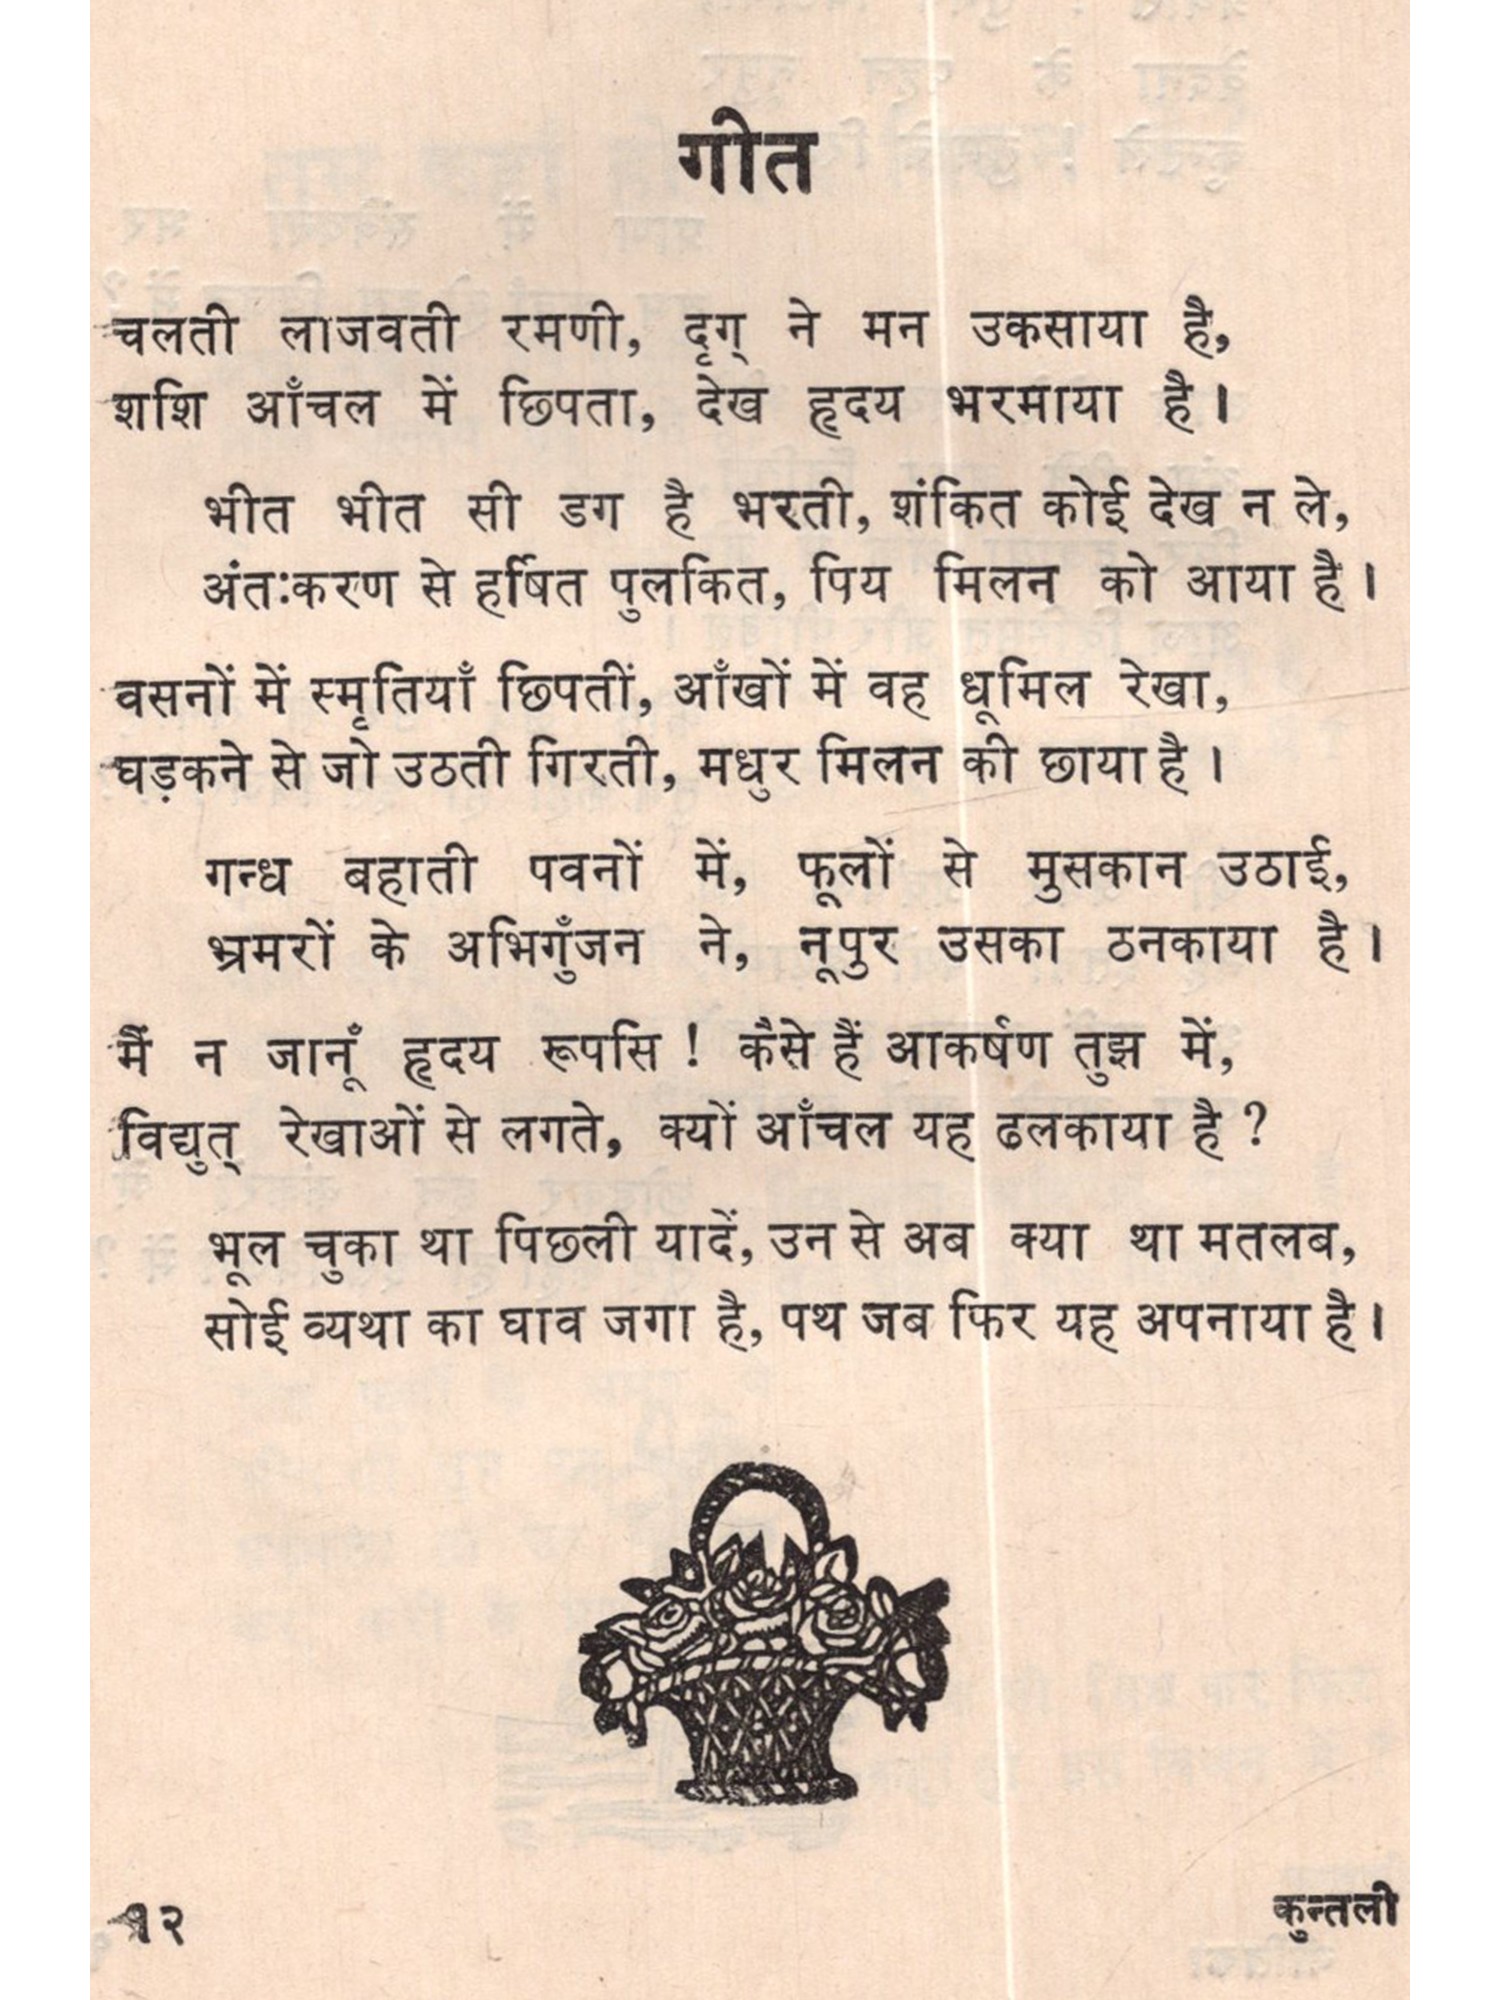 गीत
चलती लाजवती रमणी, दृग् ने मन उकसाया है,
शशि आँचल में छिपता, देख हृदय भरमाया है।
भीत भीत सी डग है भरती, शंकित कोई देख न ले,
अंतःकरण से हर्षित पुलकित, पिय मिलन को आया है।
वसनों में स्मृतियाँ छिपतीं, आँखों में वह धूमिल रेखा,
घड़कने से जो उठती गिरती, मधुर मिलन की छाया है।
गन्ध बहाती पवनों में, फूलों से मुसकान उठाई,
भ्रमरों के अभिगुँजन ने, नूपुर उसका ठनकाया है।
मैं न जानूँ हृदय रूपसि ! कैसे हैं आकर्षण तुझ में,
विद्युत् रेखाओं से लगते, क्यों आँचल यह ढलकाया है ?
भूल चुका था पिछली यादें, उन से अब क्या था मतलब,
सोई व्यथा का घाव जगा है, पथ जब फिर यह अपनाया है।
१२
कुन्तली